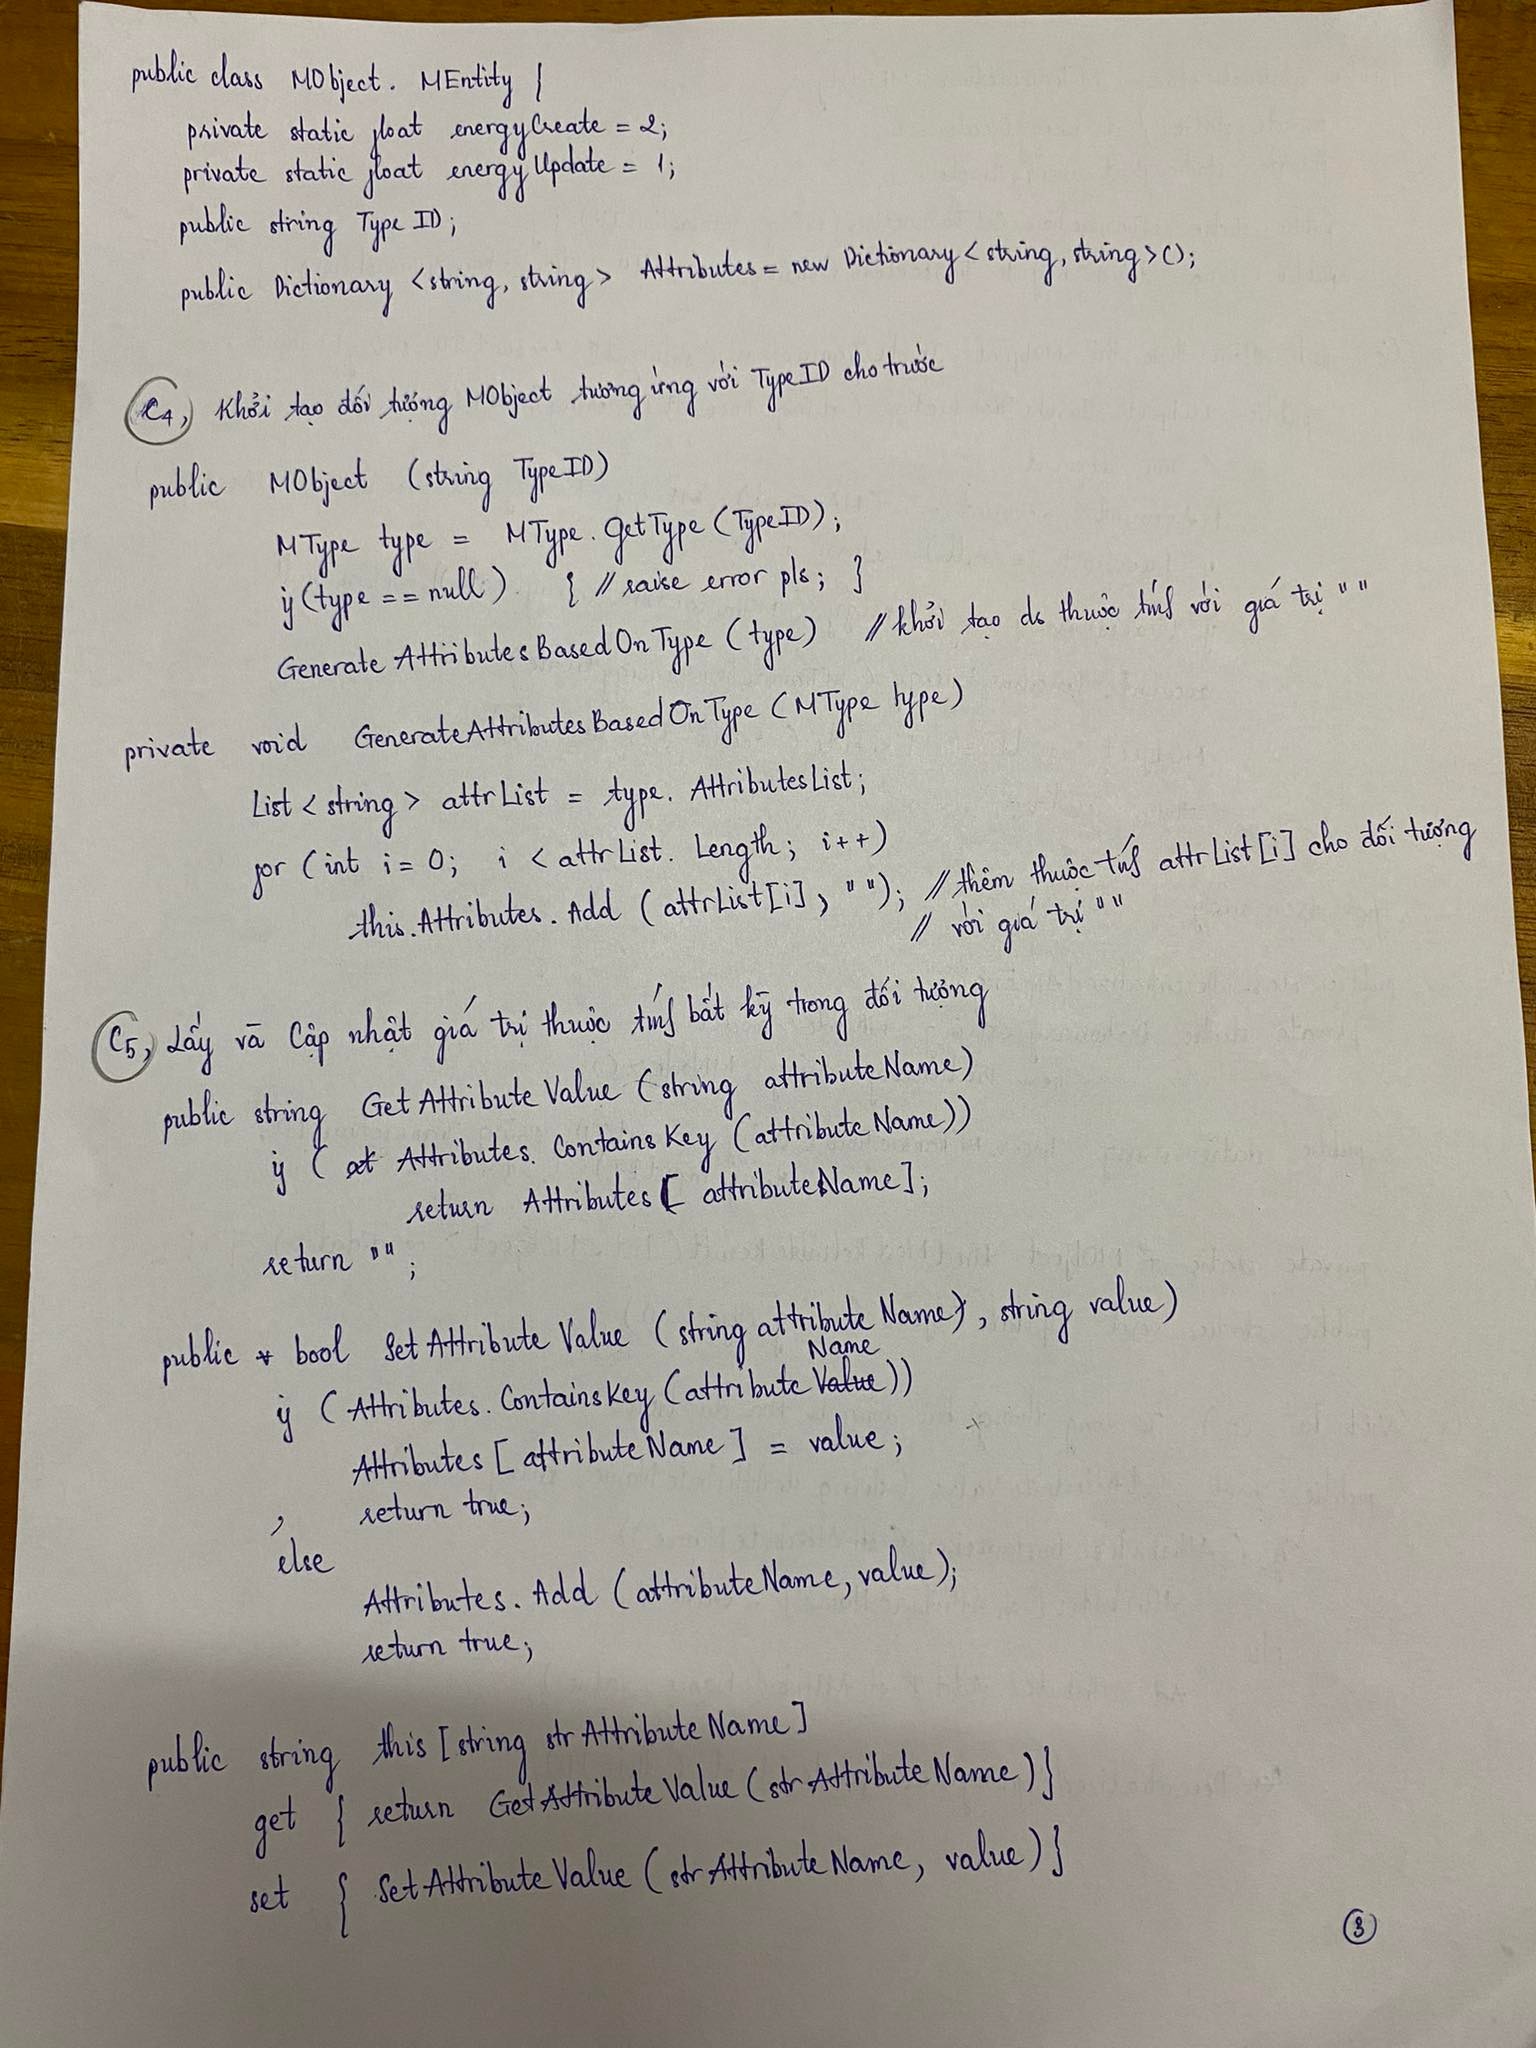 public class MObject. MEntity {
private static float energyCreate = 2;
private static float energyUpdate = 1;
public string TypeID;
public Dictionary <string, string> Attributes = new Dictionary <string, string>();
C4, Khởi tạo đối tượng MObject tương ứng với TypeID cho trước
public MObject (string TypeID)
MType type = MType.GetType (TypeID);
if (type == null) { // raise error pls; }
GenerateAttributesBasedOnType (type) // khởi tạo ds thuộc tính với giá trị ""
private void GenerateAttributesBasedOnType (MType type)
List <string> attrList = type. AttributesList;
for (int i = 0; i < attrList. Length; i++)
this.Attributes.Add (attrList[i], ""); // thêm thuộc tính attrList[i] cho đối tượng
// với giá trị ""
C5, Lấy và Cập nhật giá trị thuộc tính bất kỳ trong đối tượng
public string GetAttributeValue (string attributeName)
if (Attributes. ContainsKey (attributeName))
return Attributes[ attributeName];
return "";
public bool SetAttributeValue (string attributeName, string value)
if (Attributes. ContainsKey (attributeName))
Attributes [attributeName] = value;
return true;
else
Attributes. Add (attributeName, value);
return true;
public string this [string strAttributeName]
get { return GetAttributeValue (strAttributeName)}
set { SetAttributeValue (strAttributeName, value)}
3